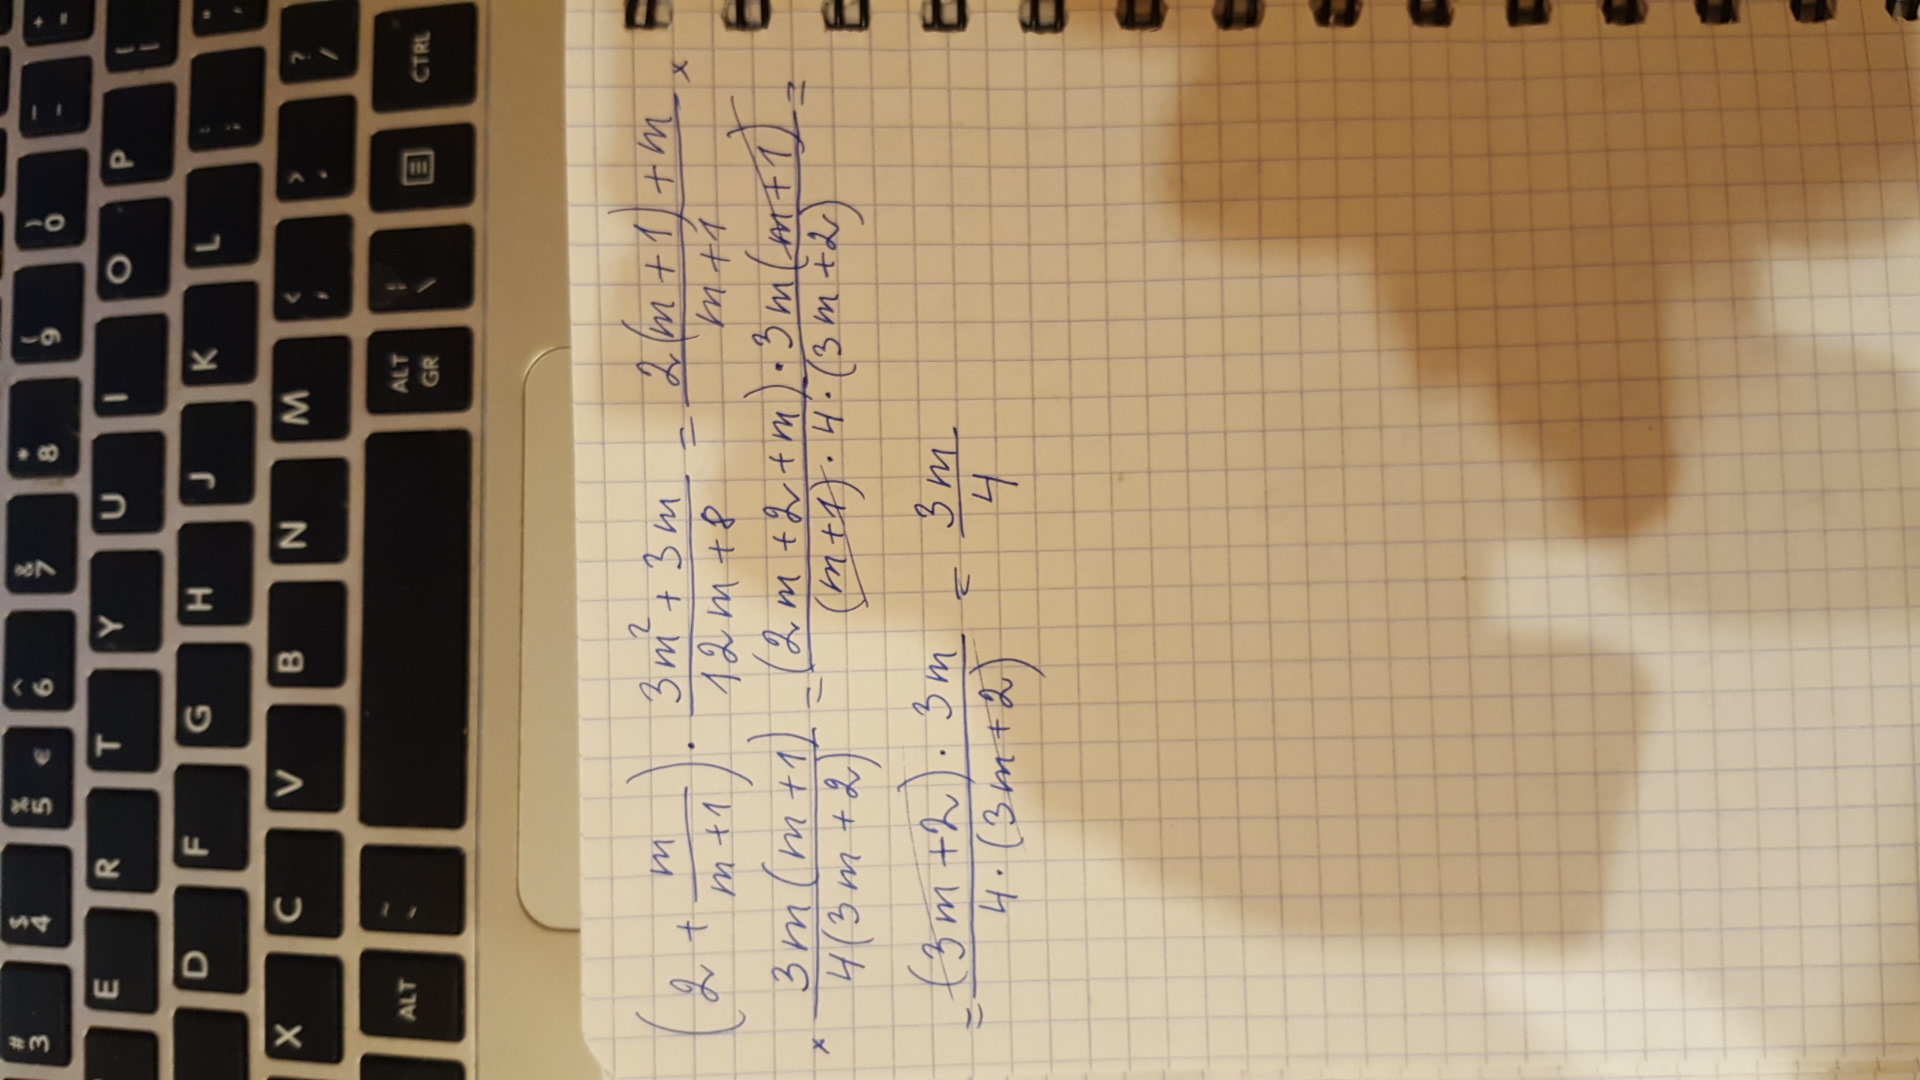 (2 + m/(m+1)) · (3m² + 3m)/(12m + 8) = (2(m+1) + m)/(m+1) ×
× 3m(m+1)/4(3m+2) = (2m+2+m) · 3m(m+1)/(m+1) · 4 · (3m+2) =
= (3m+2) · 3m/4 · (3m+2) = 3m/4
# 3
$ 4
% 5 €
^ 6
& 7
* 8
( 9
) 0
_ -
+ =
E R T Y U I O P { [
D F G H J K L : ; " '
X C V B N M < , > . ? /
ALT
ALT GR
| \
CTRL